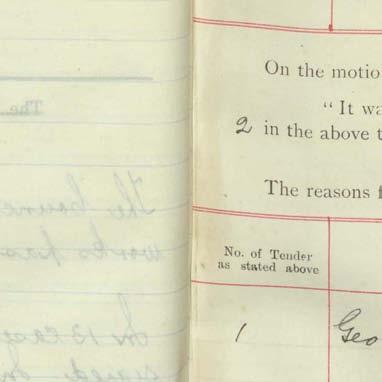 The
The
works
In 13 case
signed
On the motio
" It wa
2 in the above t
The reasons f
No. of Tender
as stated above
1 Geo